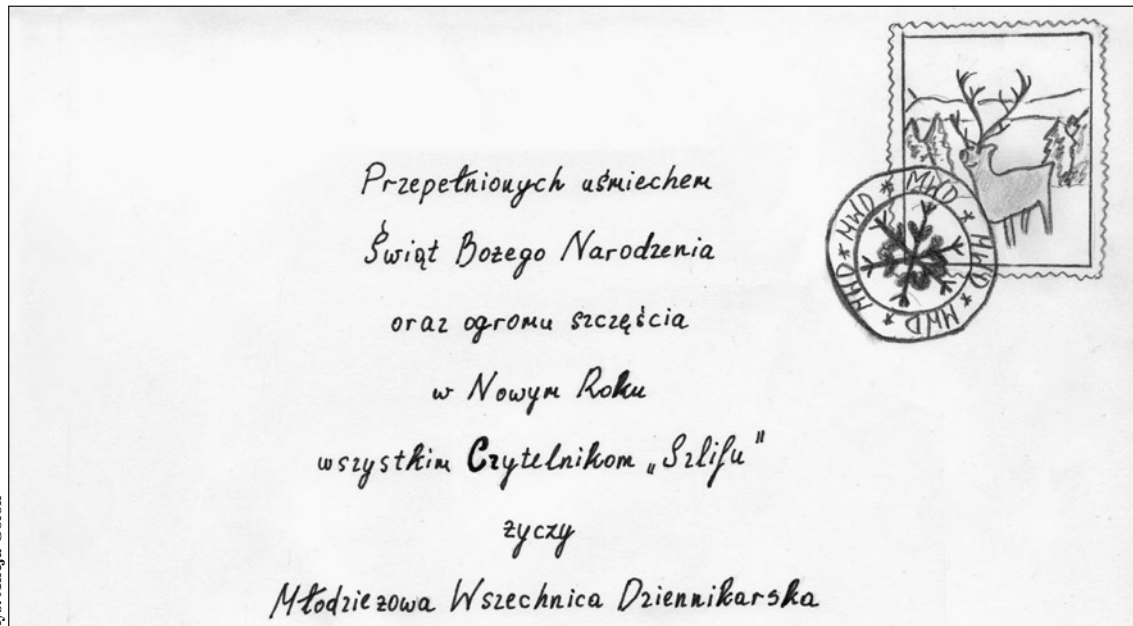 Przepełnionych uśmiechem
Świąt Bożego Narodzenia
oraz ogromu szczęścia
w Nowym Roku
wszystkim Czytelnikom „Szlifu"
życzy
Młodzieżowa Wszechnica Dziennikarska
MWD * MWD * MWD * MWD * MWD *